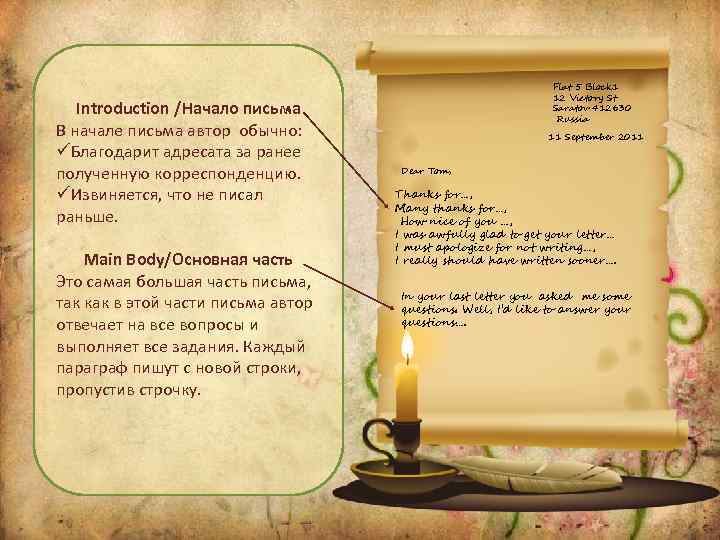 Introduction /Начало письма
В начале письма автор обычно:
✓Благодарит адресата за ранее
полученную корреспонденцию.
✓Извиняется, что не писал
раньше.
Main Body/Основная часть
Это самая большая часть письма,
так как в этой части письма автор
отвечает на все вопросы и
выполняет все задания. Каждый
параграф пишут с новой строки,
пропустив строчку.
Flat 5 Block1
12 Victory St
Saratov 412630
Russia
11 September 2011
Dear Tom,
Thanks for…,
Many thanks for…,
How nice of you …,
I was awfully glad to get your letter…
I must apologize for not writing…,
I really should have written sooner….
In your last letter you asked me some
questions. Well, I'd like to answer your
questions….